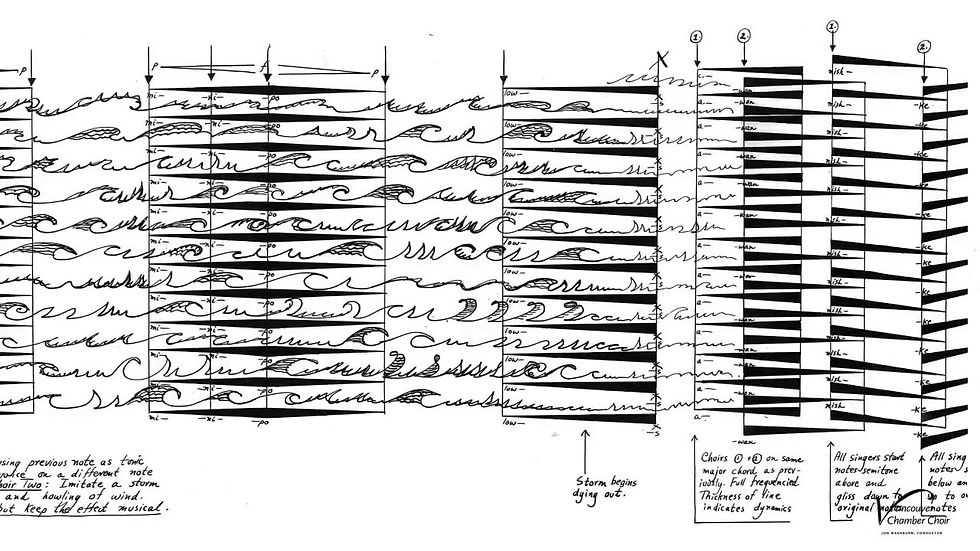 1. 2. 1. 2.
p p f p
mi- -ni- -po low- -s a- -wan nish- -ke
mi- -ni- -po low- -s a- -wan nish- -ke
mi- -ni- -po low- -s a- -wan nish- -ke
mi- -ni- -po low- -s a- -wan nish- -ke
mi- -ni- -po low- -s a- -wan nish- -ke
mi- -ni- -po low- -s a- -wan nish- -ke
mi- -ni- -po low- -s a- -wan nish- -ke
mi- -ni- -po low- -s a- -wan nish- -ke
mi- -ni- -po low- -s a- -wan nish- -ke
mi- -ni- -po low- -s a- -wan nish- -ke
mi- -ni- -po low- -s a- -wan nish- -ke
using previous note as tonic
on a different note
Choir Two: Imitate a storm
and howling of wind.
but keep the effect musical.
Storm begins
dying out.
Choirs 1 + 2 on same
major chord as prev-
iously. Full frequencied
Thickness of line
indicates dynamics
All singers start
notes semitone
above and
gliss down to
original notes
All sing
notes s
below an
up to o
notes
Vancouver
Chamber Choir
JON WASHBURN, CONDUCTOR